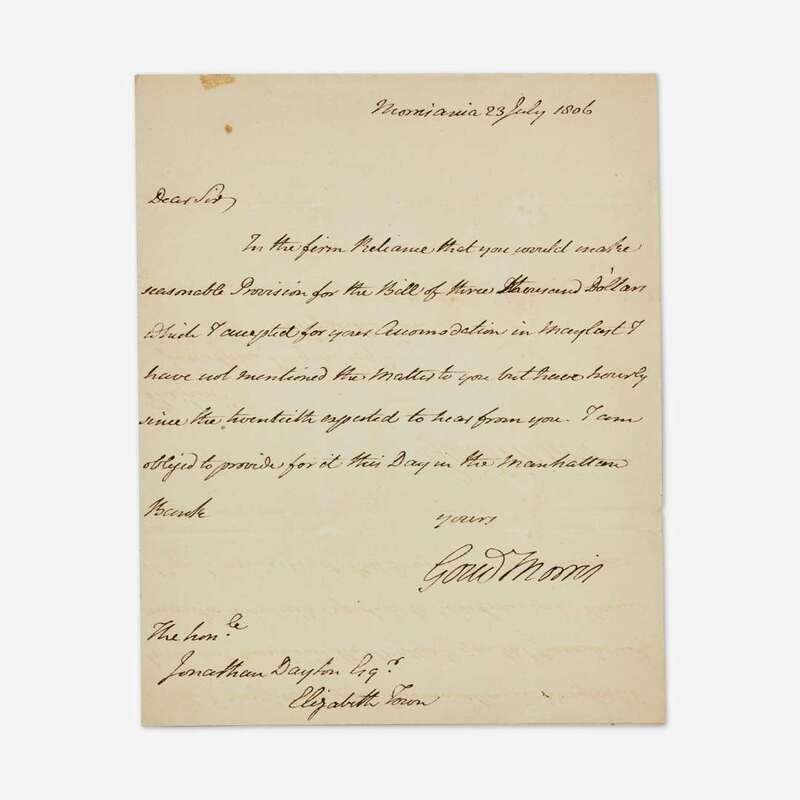 Morrisania 23 July 1806
Dear Sir,
In the firm Reliance that you would make
reasonable Provision for the Bill of three thousand Dollars
which I accepted for your Accomodation in May last I
have not mentioned the Matter to you but have hourly
since the twentieth expected to hear from you. I am
obliged to provide for it this Day in the Manhattan
Bank
yours
Gouv Morris
The honble
Jonathan Dayton Esqr
Elizabeth Town